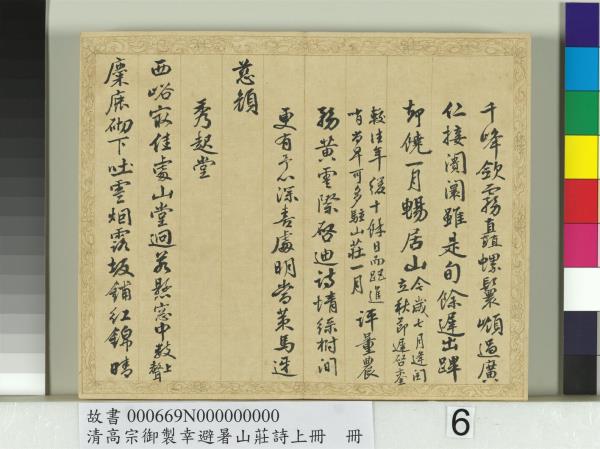 千峰歛霧矗螺鬟頫過廣
仁接闠闤雖是旬餘遲出蹕
却饒一月暢居山
今歲七月逢閏
立秋節遲啓鑾
較往年緩十餘日而距進
哨尚早可多駐山莊一月
評量農
務黃雲際啓迪詩情綠樹間
更有予心深喜處明當策馬迓
慈顏
秀起堂
西峪最佳處山堂迥若懸窓中
砌下吐雲烟露坂鋪紅錦晴
故書 000669N000000000
清高宗御製幸避暑山莊詩上冊 冊
6